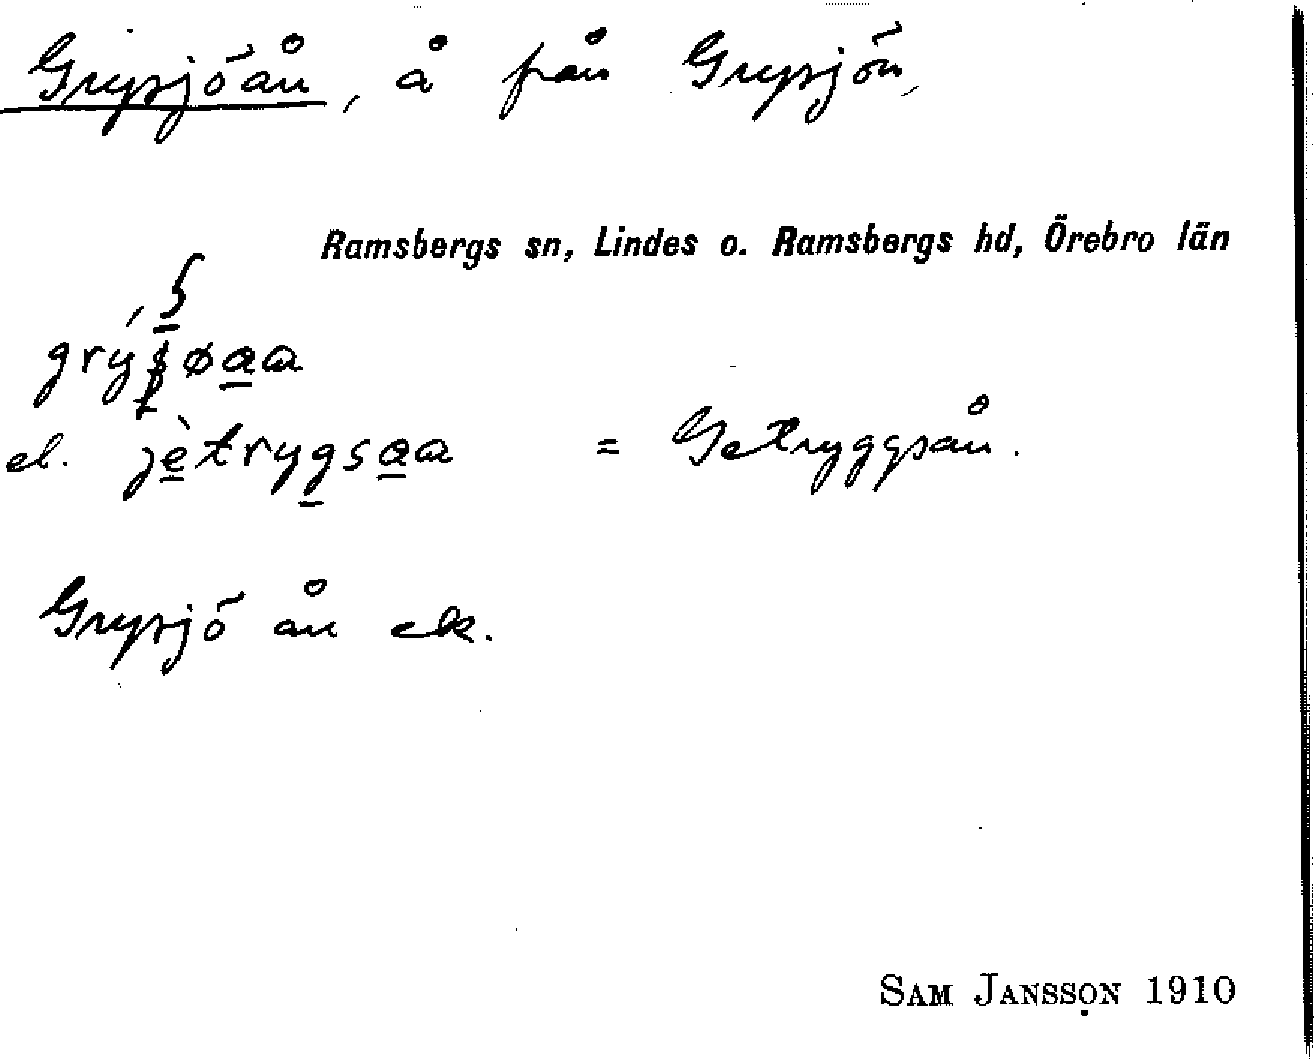 Grysjöån, å från Grysjön,
Ramsbergs sn, Lindes o. Ramsbergs hd, Örebro län
el. jètrygsaa = Getryggsån.
Grysjö ån ek.
SAM JANSSON 1910